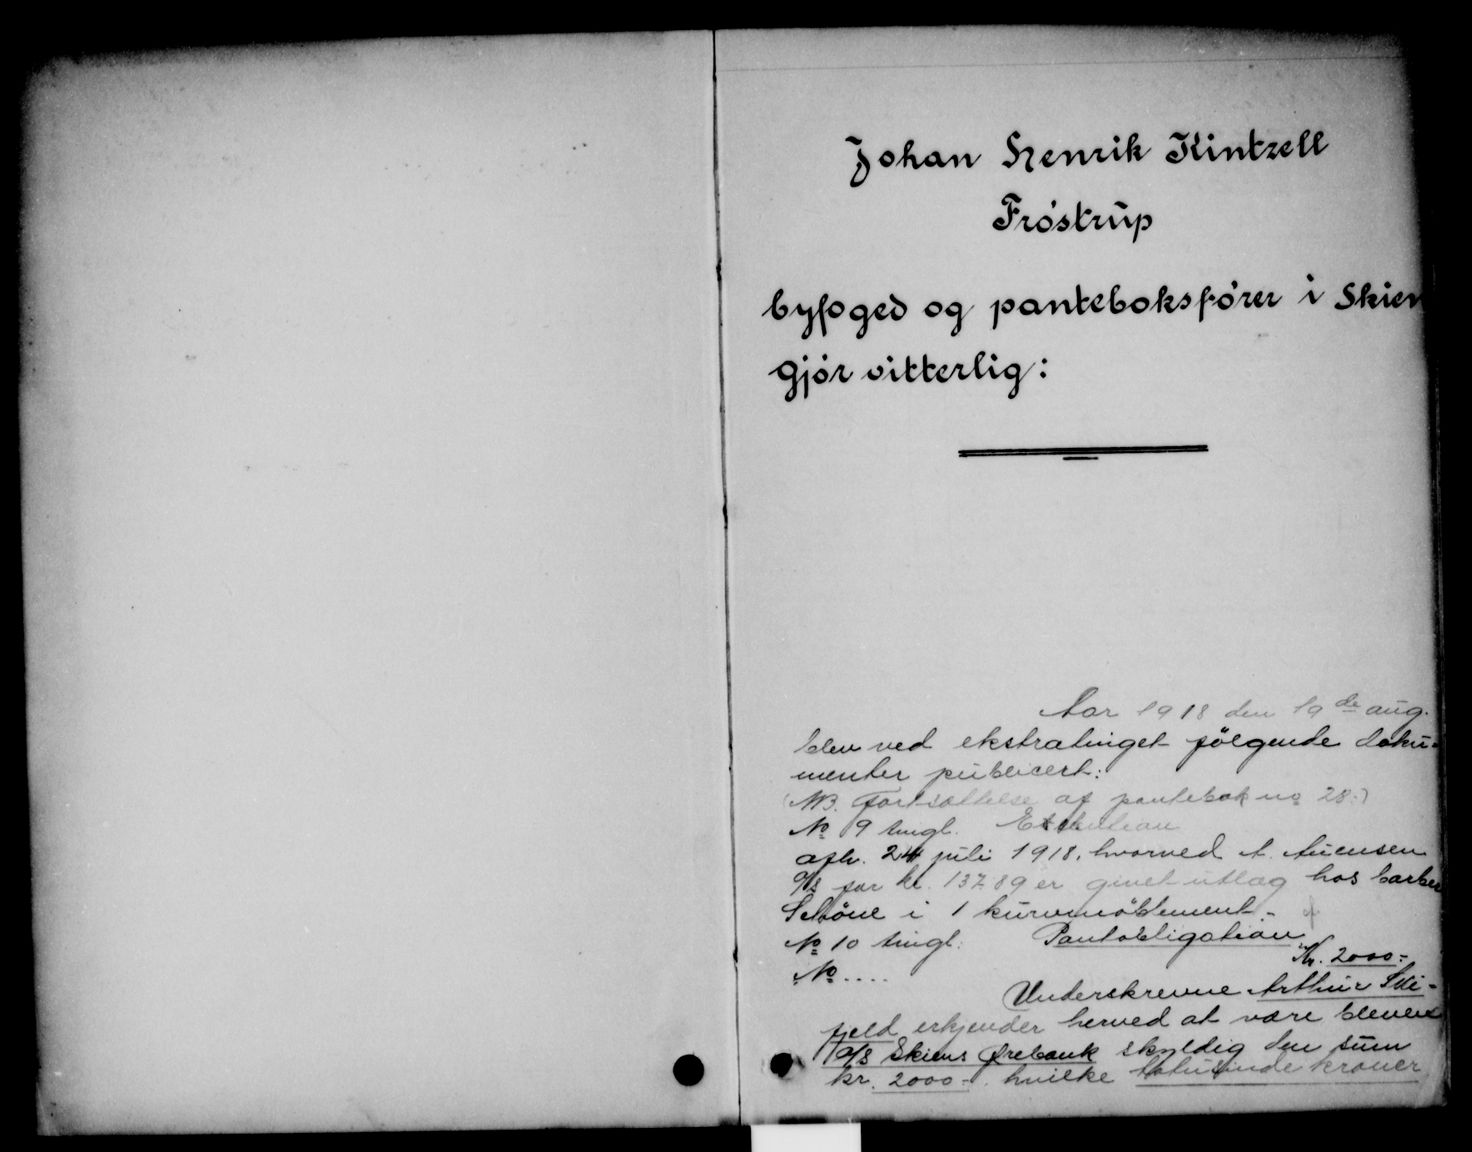 Johan Henrik Kintzell
Fróstrup
byfoged og panteboksfórer i Skien
gjór vitterlig:
Aar 1918 den 19de aug.
blev ved ekstratinget følgende doku-
menter publicert:
(NB. Fortsættelse af pantebok no 28.)
No 9 tingl. Ekstraktion
afh. 24 juli 1918, hvorved A.
A/S for kr. 137.89 er givet utlæg hos barber
Schöne i 1 kurvmøblement.-
No 10 tingl. Pantobligation
Kr. 2000.-
No ....
Underskrevne Arthur Ski-
fjeld erkjender herved at være bleven
A/S Skiens Ørebank skyldig den sum
kr. 2000.- hvilke totusinde kroner